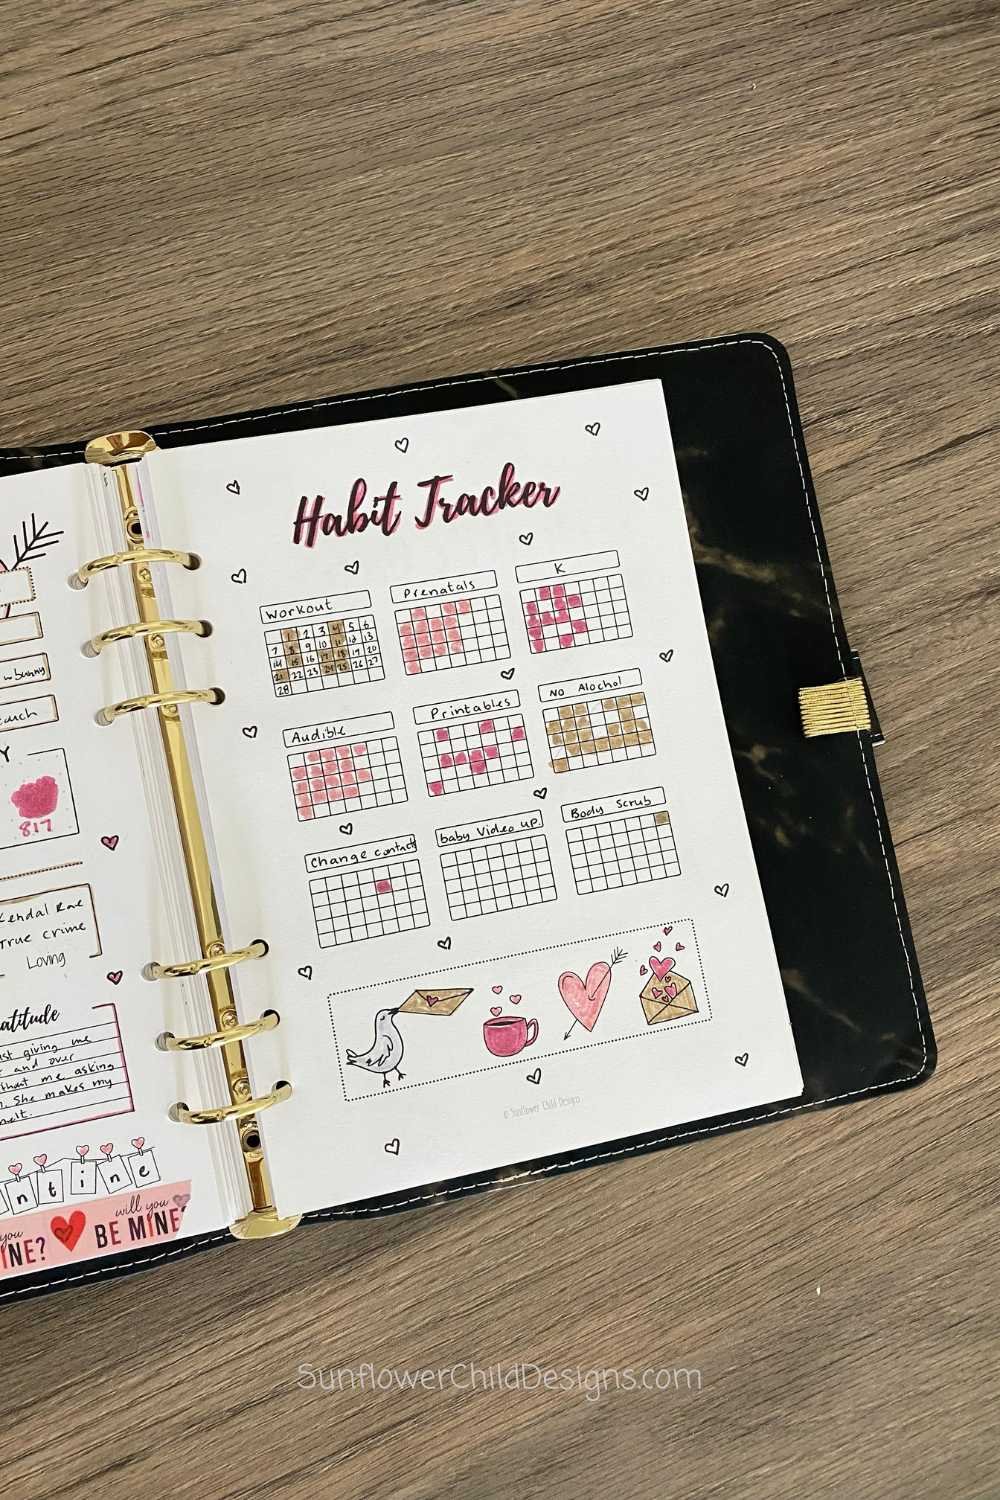 w bunny
Y
817
Kendal Rae
True crime
Loving
giving me
and over
that me asking
She makes my
melt.
n t i n e
you
will you
BE MINE?
Habit Tracker
Workout
1 2 3 4 5 6
7 8 9 10 11 12 13
14 15 16 17 18 19 20
21 22 23 24 25 26 27
28
Prenatals
K
Audible
Printables
No Alochol
Change contacts
baby Video up.
Body Scrub
© Sunflower Child Designs
SunflowerChildDesigns.com